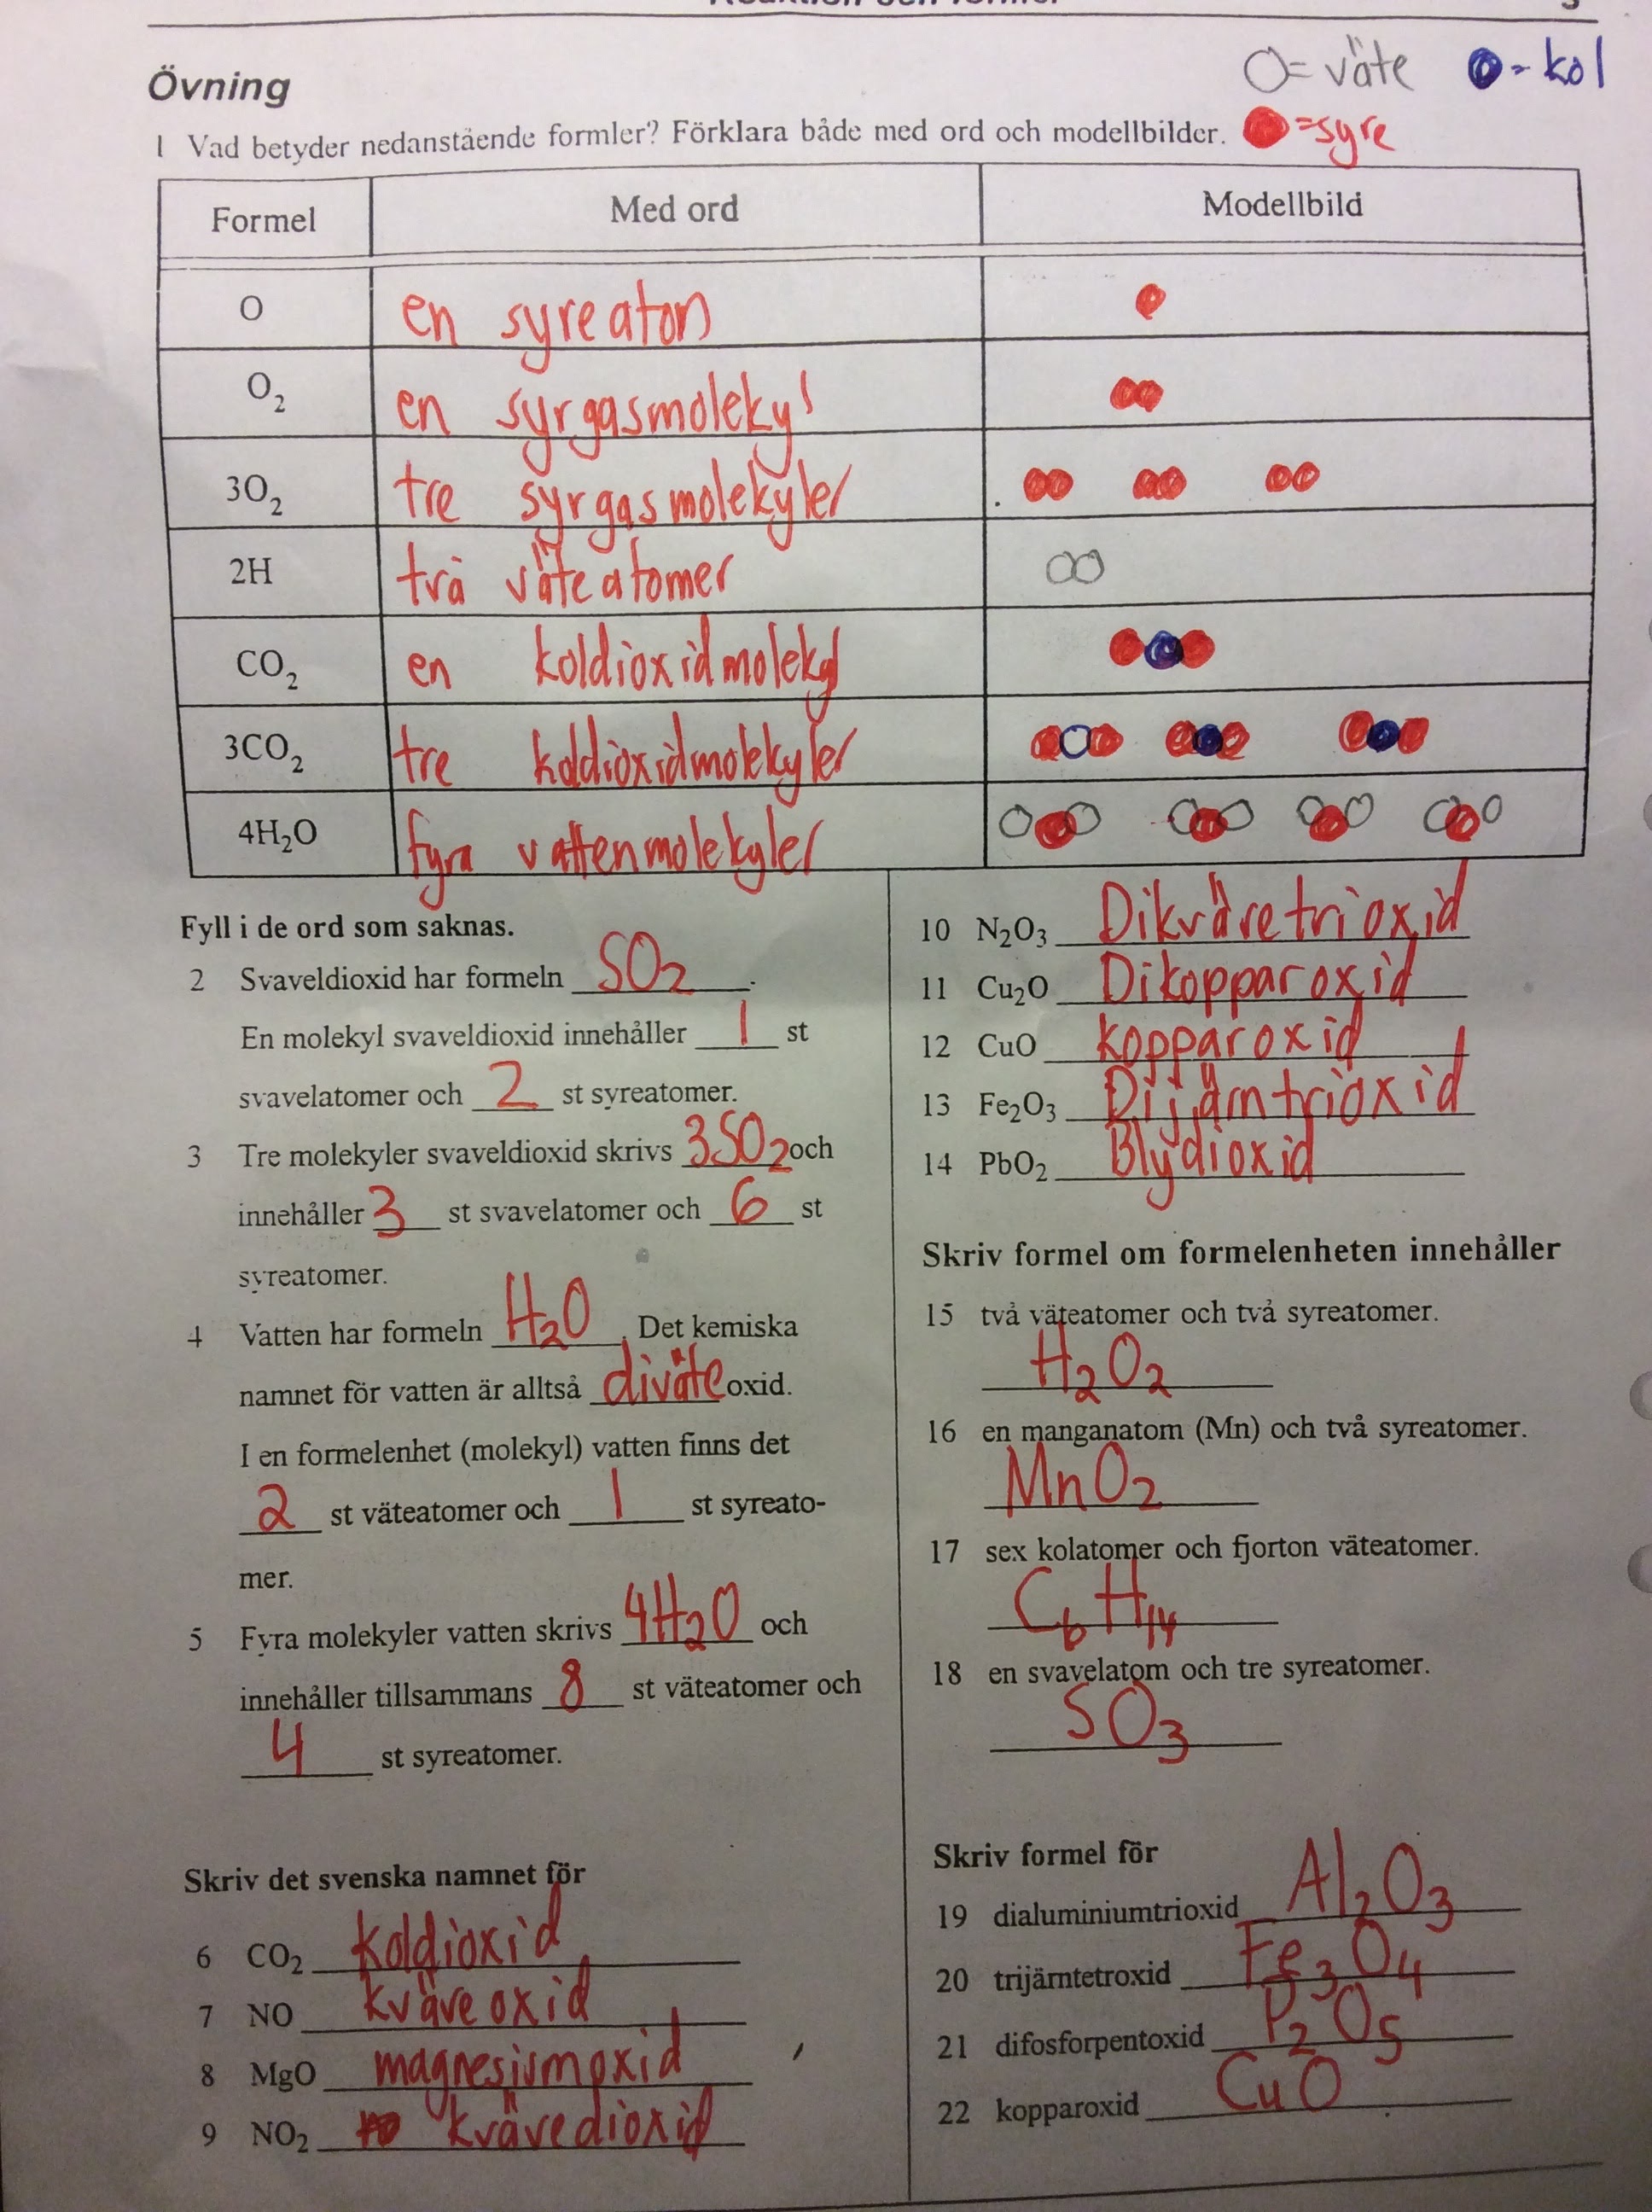 Övning
O = väte
- kol
1 Vad betyder nedanstående formler? Förklara både med ord och modellbilder.
= syre
Formel Med ord Modellbild
O en syreatom
O₂ en syrgasmolekyl
3O₂ tre syrgasmolekyler
2H två väteatomer
CO₂ en koldioxidmolekyl
3CO₂ tre koldioxidmolekyler
4H₂O fyra vattenmolekyler
Fyll i de ord som saknas.
2 Svaveldioxid har formeln SO₂.
En molekyl svaveldioxid innehåller 1 st
svavelatomer och 2 st syreatomer.
3 Tre molekyler svaveldioxid skrivs 3SO₂ och
innehåller 3 st svavelatomer och 6 st
syreatomer.
4 Vatten har formeln H₂O. Det kemiska
namnet för vatten är alltså diväteoxid.
I en formelenhet (molekyl) vatten finns det
2 st väteatomer och 1 st syreato-
mer.
5 Fyra molekyler vatten skrivs 4H₂O och
innehåller tillsammans 8 st väteatomer och
4 st syreatomer.
Skriv det svenska namnet för
6 CO₂ Koldioxid
7 NO kväveoxid
8 MgO magnesiumoxid
9 NO₂ kvävedioxid
10 N₂O₃ Dikvävetrioxid
11 Cu₂O Dikopparoxid
12 CuO kopparoxid
13 Fe₂O₃ Dijärntrioxid
14 PbO₂ Blydioxid
Skriv formel om formelenheten innehåller
15 två väteatomer och två syreatomer.
H₂O₂
16 en manganatom (Mn) och två syreatomer.
MnO₂
17 sex kolatomer och fjorton väteatomer.
C₆H₁₄
18 en svavelatom och tre syreatomer.
SO₃
Skriv formel för
19 dialuminiumtrioxid Al₂O₃
20 trijärntetroxid Fe₃O₄
21 difosforpentoxid P₂O₅
22 kopparoxid CuO